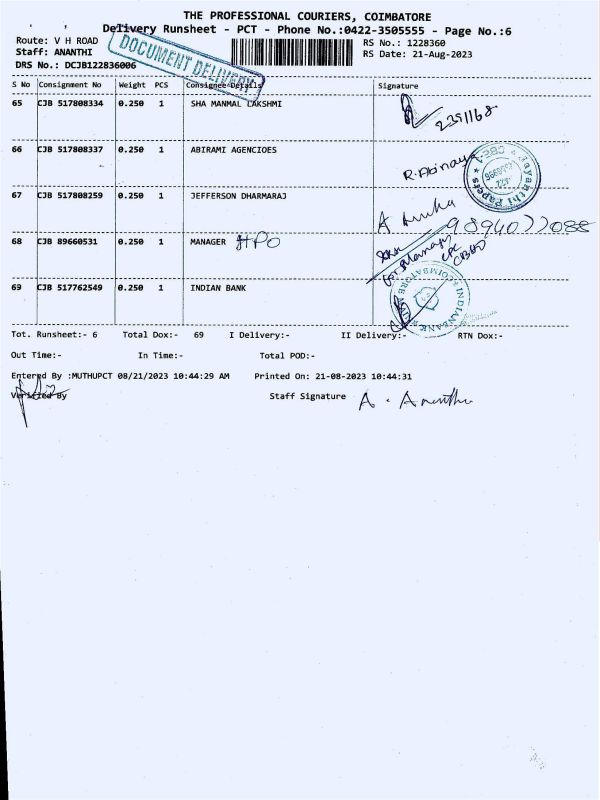 THE PROFESSIONAL COURIERS, COIMBATORE
Delivery Runsheet - PCT - Phone No.:0422-3505555 - Page No.:6
Route: V H ROAD
RS No.: 1228360
Staff: ANANTHI
RS Date: 21-Aug-2023
DRS No.: DCJB122836006
DOCUMENT DELIVERY
S No Consignment No Weight PCS Consignee Details Signature
65 CJB 517808334 0.250 1 SHA MANMAL LAKSHMI
2391168
66 CJB 517808337 0.250 1 ABIRAMI AGENCIOES R.Abinaya
Jayanthi Papers
67 CJB 517808259 0.250 1 JEFFERSON DHARMARAJ
9894077088
68 CJB 89660531 0.250 1 MANAGER HPO
69 CJB 517762549 0.250 1 INDIAN BANK
INDIAN BANK COIMBATORE
Tot. Runsheet:- 6 Total Dox:- 69 I Delivery:- II Delivery:- RTN Dox:-
Out Time:- In Time:- Total POD:-
Entered By :MUTHUPCT 08/21/2023 10:44:29 AM Printed On: 21-08-2023 10:44:31
Verified By Staff Signature A. Ananthi